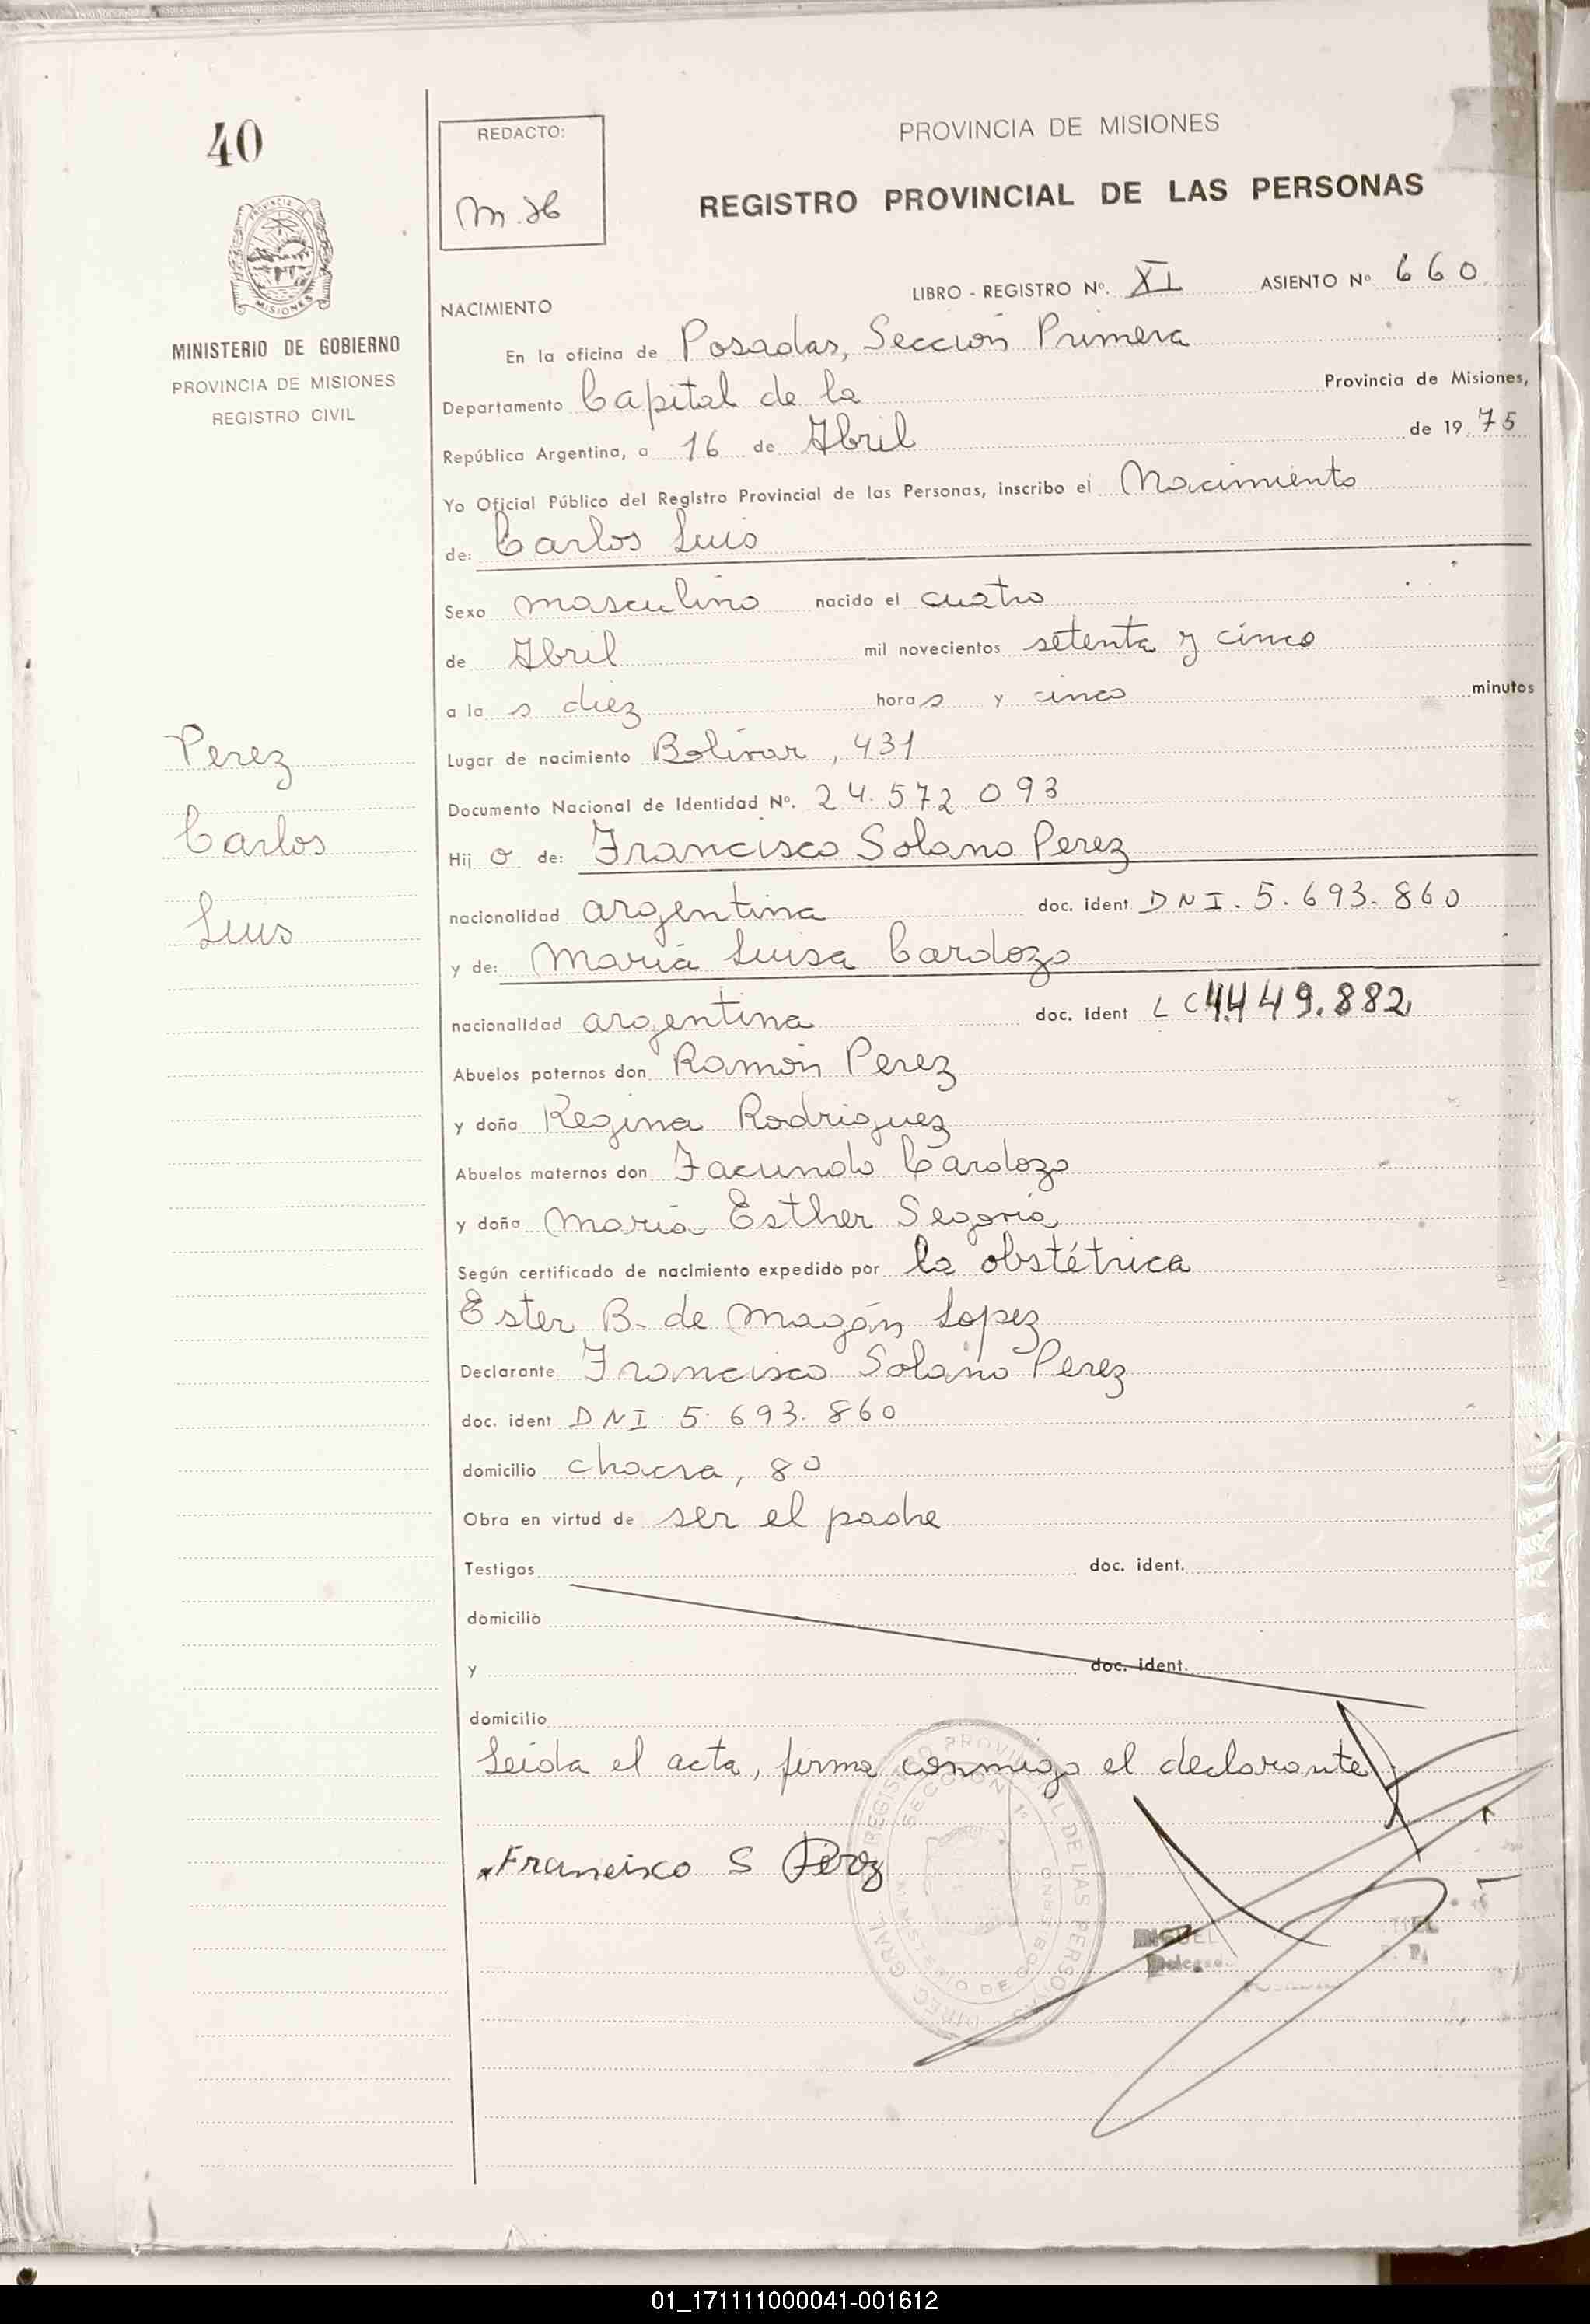 40
REDACTO:
PROVINCIA DE MISIONES
REGISTRO PROVINCIAL DE LAS PERSONAS
MISIONES
MINISTERIO DE GOBIERNO
PROVINCIA DE MISIONES
REGISTRO CIVIL
LIBRO - REGISTRO Nº. XI ASIENTO Nº 660
NACIMIENTO
En la oficina de Posadas, Sección Primera
Departamento Capital de la Provincia de Misiones,
República Argentina, a 16 de Abril de 1975
Yo Oficial Público del Registro Provincial de las Personas, inscribo el Nacimiento
de: Carlos Luis
Sexo masculino nacido el cuatro
de Abril mil novecientos setenta y cinco
a la s diez hora s y cinco minutos
Perez
Carlos
Luis
Lugar de nacimiento Bolívar, 431
Documento Nacional de Identidad Nº. 24.572.093
Hij o de: Francisco Solano Perez
nacionalidad argentina doc. ident DNI. 5.693.860
y de: María Luisa Cardozo
nacionalidad argentina doc. ident LC 4.449.882
Abuelos paternos don Ramón Perez
y doña Regina Rodriguez
Abuelos maternos don Facundo Cardozo
y doña María Esther Segovia
Según certificado de nacimiento expedido por la obstétrica
Ester B. de Magán Lopez
Declarante Francisco Solano Perez
doc. ident DNI. 5.693.860
domicilio chacra, 80
Obra en virtud de ser el padre
Testigos doc. ident.
domicilio
y doc. ident.
domicilio
Leída el acta, firma conmigo el declarante
Francisco S Perez
DIREC. GRAL. REGISTRO PROVINCIAL DE LAS PERSONAS
SECCION 1º
MINISTERIO DE GOBIERNO
MIGUEL
01_171111000041-001612